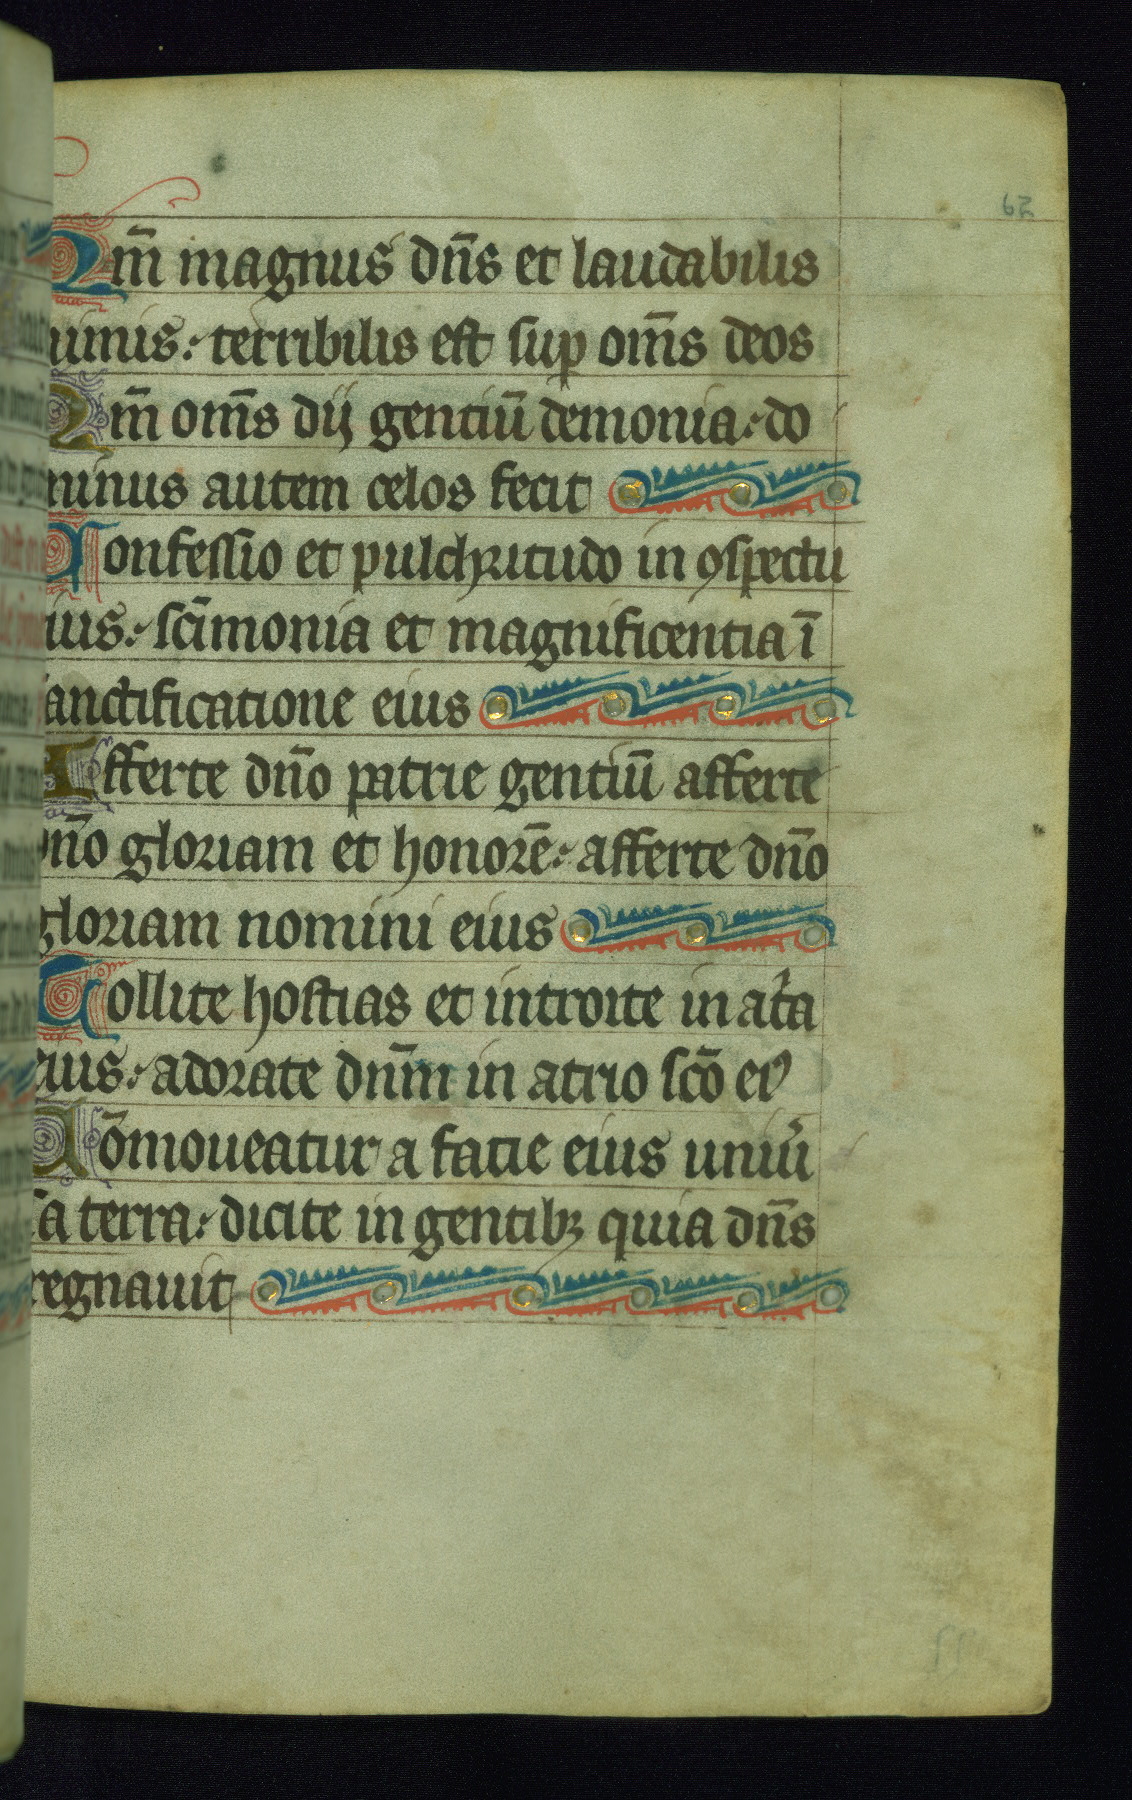 62
Qm̄ magnus dn̄s et laudabilis
nimis: terribilis est sup om̄s deos
Qm̄ om̄s dij gentiū demonia: do
minus autem celos fecit
Confessio et pulchritudo in ꝯspectu
eius: scīmonia et magnificentia ī
sanctificatione eius
Afferte dn̄o patrie gentiū afferte
dn̄o gloriam et honorē: afferte dn̄o
gloriam nomini eius
Tollite hostias et introite in at̾a
eius: adorate dn̄m in atrio scō eiꝰ
Cōmoueatur a facie eius uniu̾
sa terra: dicite in gentibꝫ quia dn̄s
regnauit